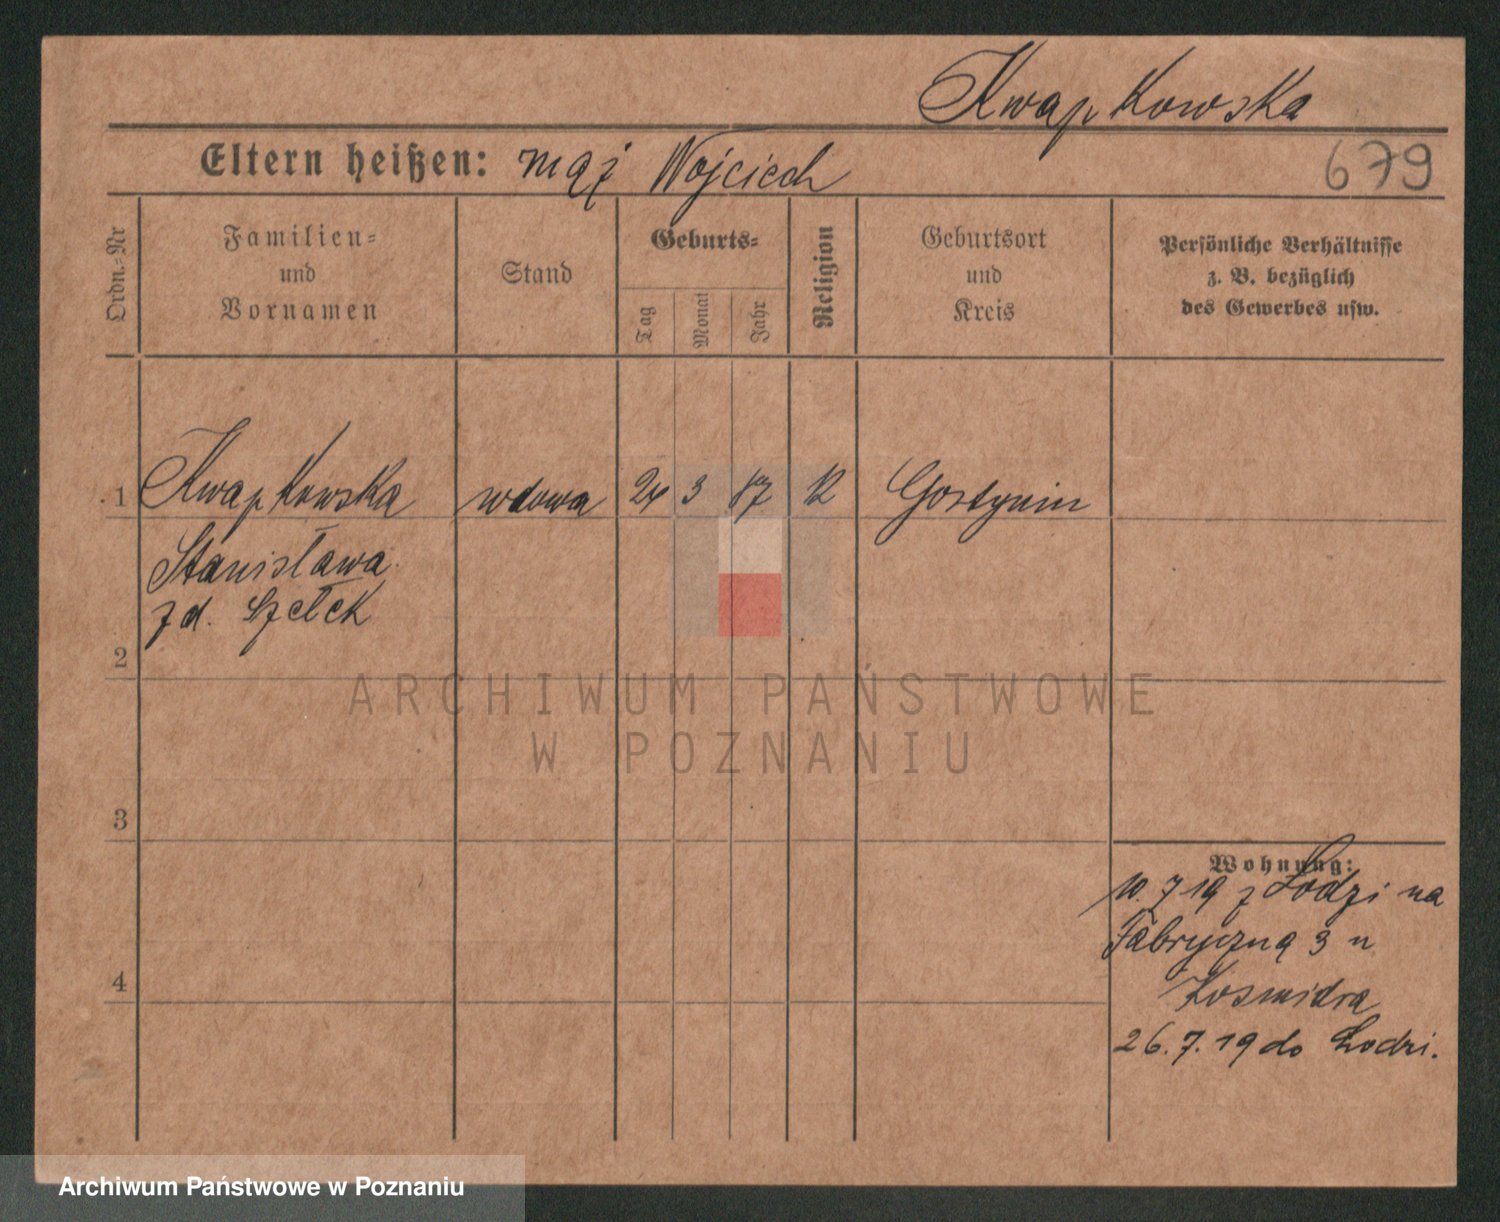 Kwapkowska
Eltern heißen: mąż Wojciech
679
Ordn.-Nr
Familien- und Vornamen
Stand
Geburts-
Tag
Monat
Jahr
Religion
Geburtsort und Kreis
Persönliche Verhältnisse
z. B. bezüglich
des Gewerbes usw.
1 Kwapkowska wdowa 24 3 87 Gostynin
Stanisława
zd. Szełek
2
ARCHIWUM PAŃSTWOWE
W POZNANIU
3
Wohnung:
10.7 19 z Łodzi na
Fabryczną 3 u
Kosmidra
4
26.7.19 do Łodzi.
Archiwum Państwowe w Poznaniu